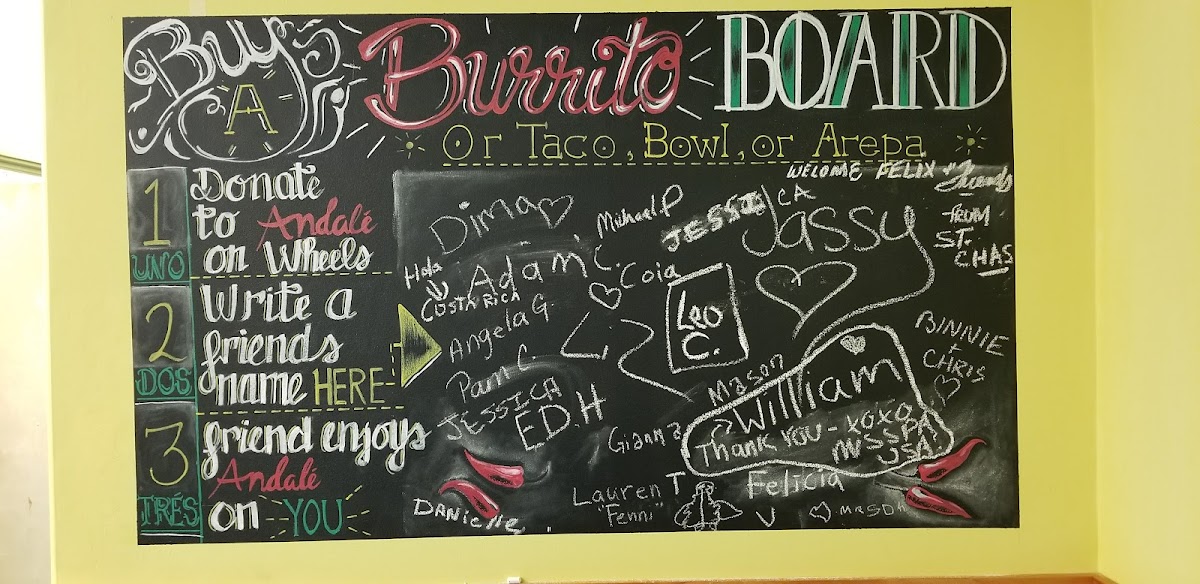 Buy's
A
Burrito
BOARD
Or Taco, Bowl, or Arepa
1
UNO
Donate
to Andalé
on Wheels
2
DOS
Write a
friends
name HERE
3
TRÉS
friend enjoys
Andalé
on YOU
WELOME FELIX & friends
FRUM
ST.
CHAS
Dima
Michael P
JESSI
CA
Jassy
Hola
Adam C.
Coia
COSTA RICA
Angela G.
Leo
C.
Pam C.
JESSICA
ED.H
BINNIE
+
CHRIS
Mason
William
THANK YOU - XOXO
Gianna
Lauren T
"Fenni"
Felicia
V
DANiElle